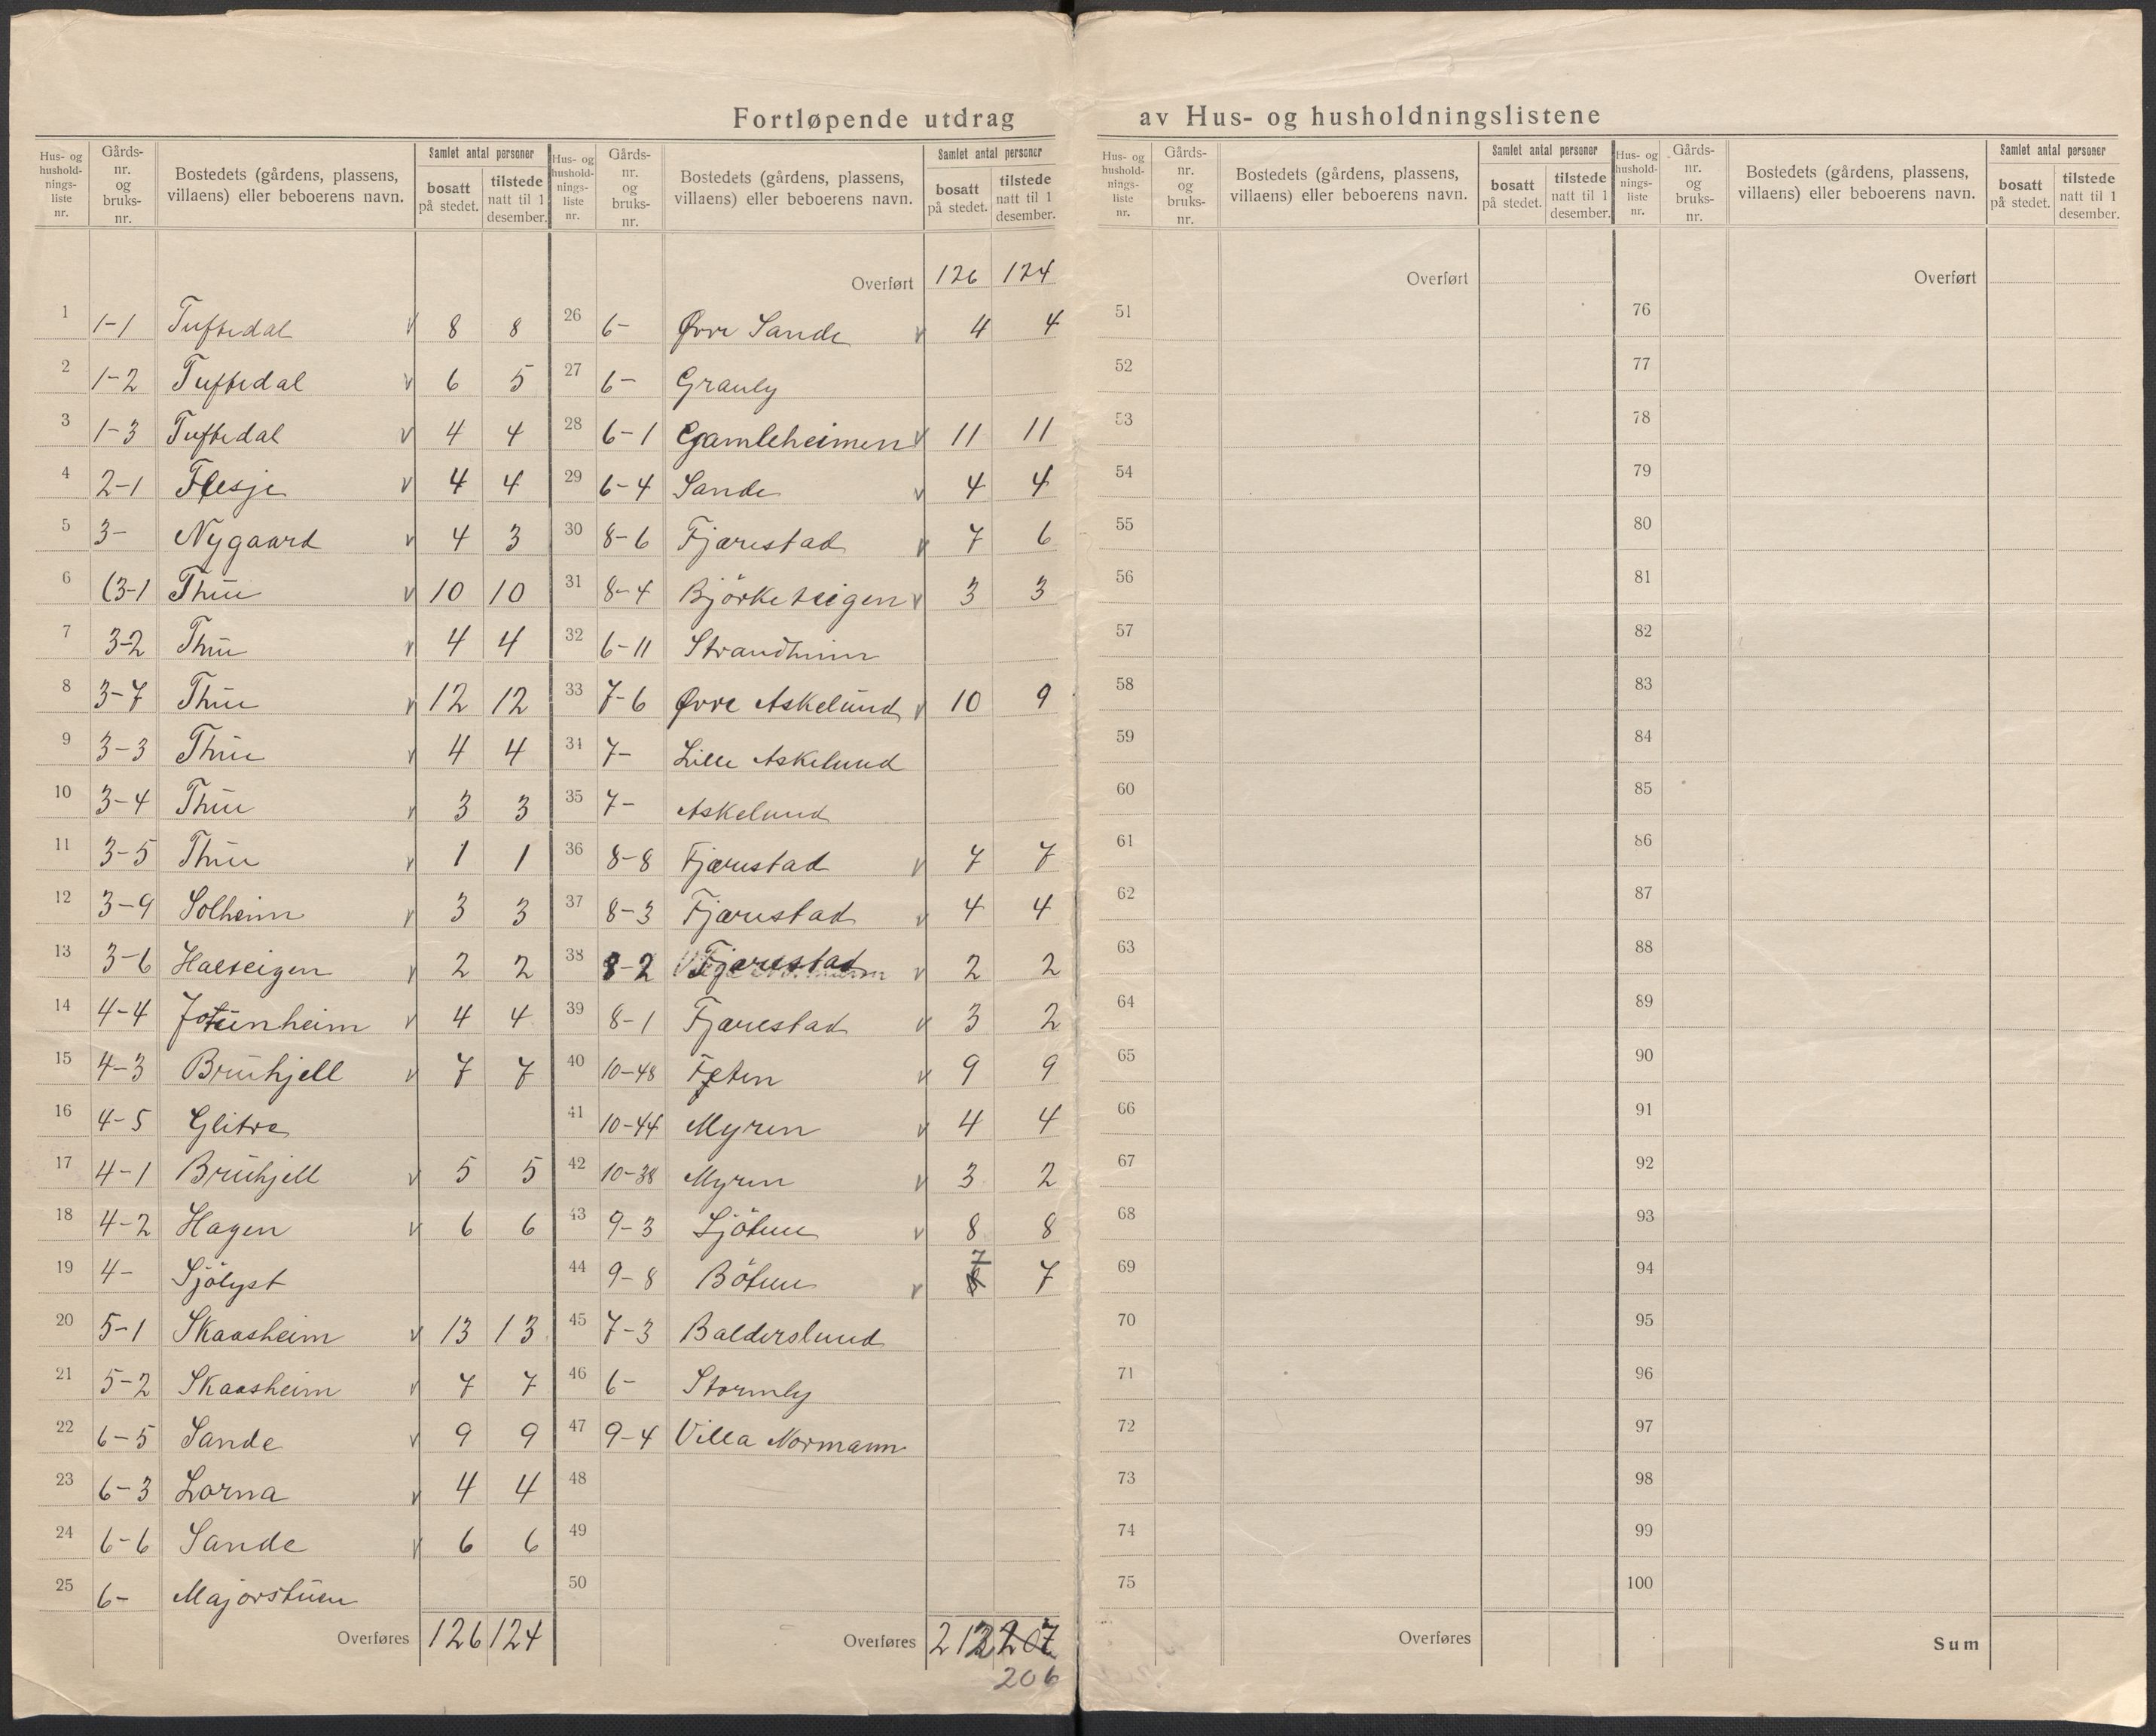 Fortløpende utdrag av Hus- og husholdningslistene
Hus- og hushold- nings- liste nr.
Gårds- nr. og bruks- nr.
Bostedets (gårdens, plassens, villaens) eller beboerens navn.
Samlet antal personer
bosatt på stedet.
tilstede natt til 1 desember.
1 1-1 Tuftedal v 8 8
2 1-2 Tuftedal v 6 5
3 1-3 Tuftedal v 4 4
4 2-1 Flesje v 4 4
5 3- Nygaard v 4 3
6 (3-1 Thue v 10 10
7 3-2 Thue v 4 4
8 3-7 Thue v 12 12
9 3-3 Thue v 4 4
10 3-4 Thue v 3 3
11 3-5 Thue v 1 1
12 3-9 Solheim v 3 3
13 3-6 Halteigen v 2 2
14 4-4 Jotunheim v 4 4
15 4-3 Bruhjell v 7 7
16 4-5 Glitre
17 4-1 Bruhjell v 5 5
18 4-2 Hagen v 6 6
19 4- Sjölyst
20 5-1 Skaasheim v 13 13
21 5-2 Skaasheim v 7 7
22 6-5 Sande v 9 9
23 6-3 Lorna v 4 4
24 6-6 Sande v 6 6
25 6- Majorstuen
Overføres 126 124
Hus- og hushold- nings- liste nr.
Gårds- nr. og bruks- nr.
Bostedets (gårdens, plassens, villaens) eller beboerens navn.
Samlet antal personer
bosatt på stedet.
tilstede natt til 1 desember.
Overført 126 124
26 6- Øvre Sande v 4 4
27 6- Granly
28 6-1 Gamleheimen v 11 11
29 6-4 Sande v 4 4
30 8-6 Fjærestad v 7 6
31 8-4 Björketeigen v 3 3
32 6-11 Strandheim
33 7-6 Øvre Askelund v 10 9
34 7- Lille Askelund
35 7- Askelund
36 8-8 Fjærestad v 7 7
37 8-3 Fjærestad v 4 4
38 8-2 Fjærestad v 2 2
39 8-1 Fjærestad v 3 2
40 10-48 Feten v 9 9
41 10-44 Myren v 4 4
42 10-38 Myren v 3 2
43 9-3 Ljötun v 8 8
44 9-8 Bötun v 8 7 7
45 7-3 Balderslund
46 6- Stormly
47 9-4 Villa Normann
48
49
50
Overføres 212 207
206
Hus- og hushold- nings- liste nr.
Gårds- nr. og bruks- nr.
Bostedets (gårdens, plassens, villaens) eller beboerens navn.
Samlet antal personer
bosatt på stedet.
tilstede natt til 1 desember.
Overført
51
52
53
54
55
56
57
58
59
60
61
62
63
64
65
66
67
68
69
70
71
72
73
74
75
Overføres
Hus- og hushold- nings- liste nr.
Gårds- nr. og bruks- nr.
Bostedets (gårdens, plassens, villaens) eller beboerens navn.
Samlet antal personer
bosatt på stedet.
tilstede natt til 1 desember.
Overført
76
77
78
79
80
81
82
83
84
85
86
87
88
89
90
91
92
93
94
95
96
97
98
99
100
Sum